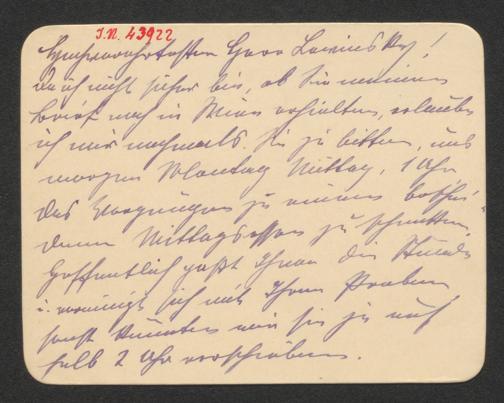 I.N. 43922
Hochverehrtester Herr Lewinsky!
Da ich nicht sicher bin, ob Sie meinen
Brief noch in Wien erhielten, erlaube
ich mir nochmals Sie zu bitten, uns
morgen Montag Mittag, 1 Uhr,
das Vergnügen zu einem beschei-
denen Mittagessen zu schenken.
Hoffentlich paßt Ihnen die Stunde
u. vereinigt sich mit Ihren Proben,
sonst könnten wir sie ja auf
halb 2 Uhr verschieben.